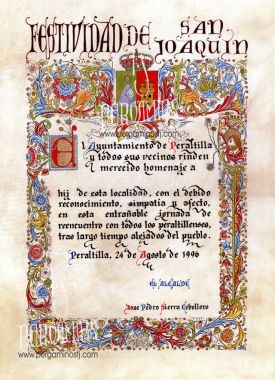 FESTIVIDAD DE SAN
JOAQUIN
PERGAMINOS
www.pergaminostj.com
El Ayuntamiento de Peraltilla
y todos sus vecinos rinden
merecido homenaje a
hij de esta localidad, con el debido
reconocimiento, simpatia y afecto,
en esta entrañable jornada de
reencuentro con todos los peraltillenses,
tras largo tiempo alejados del pueblo.
Peraltilla, 24 de Agosto de 1996
EL ALCALDE
José Pedro Sierra Cebollero
PERGAMINOS
www.pergaminostj.com